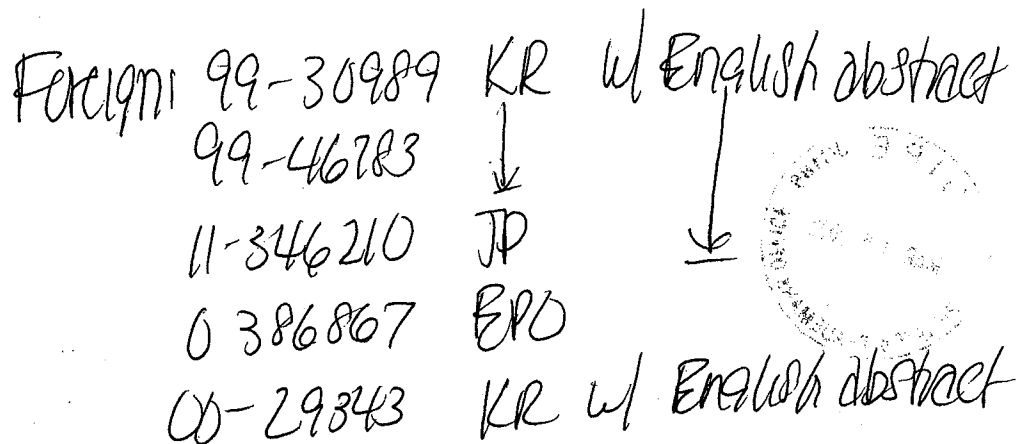 Foreign: 99-30989 KR w/ English abstract
99-46283
11-346210 JP
0 386867 EPO
00-29343 KR w/ English abstract